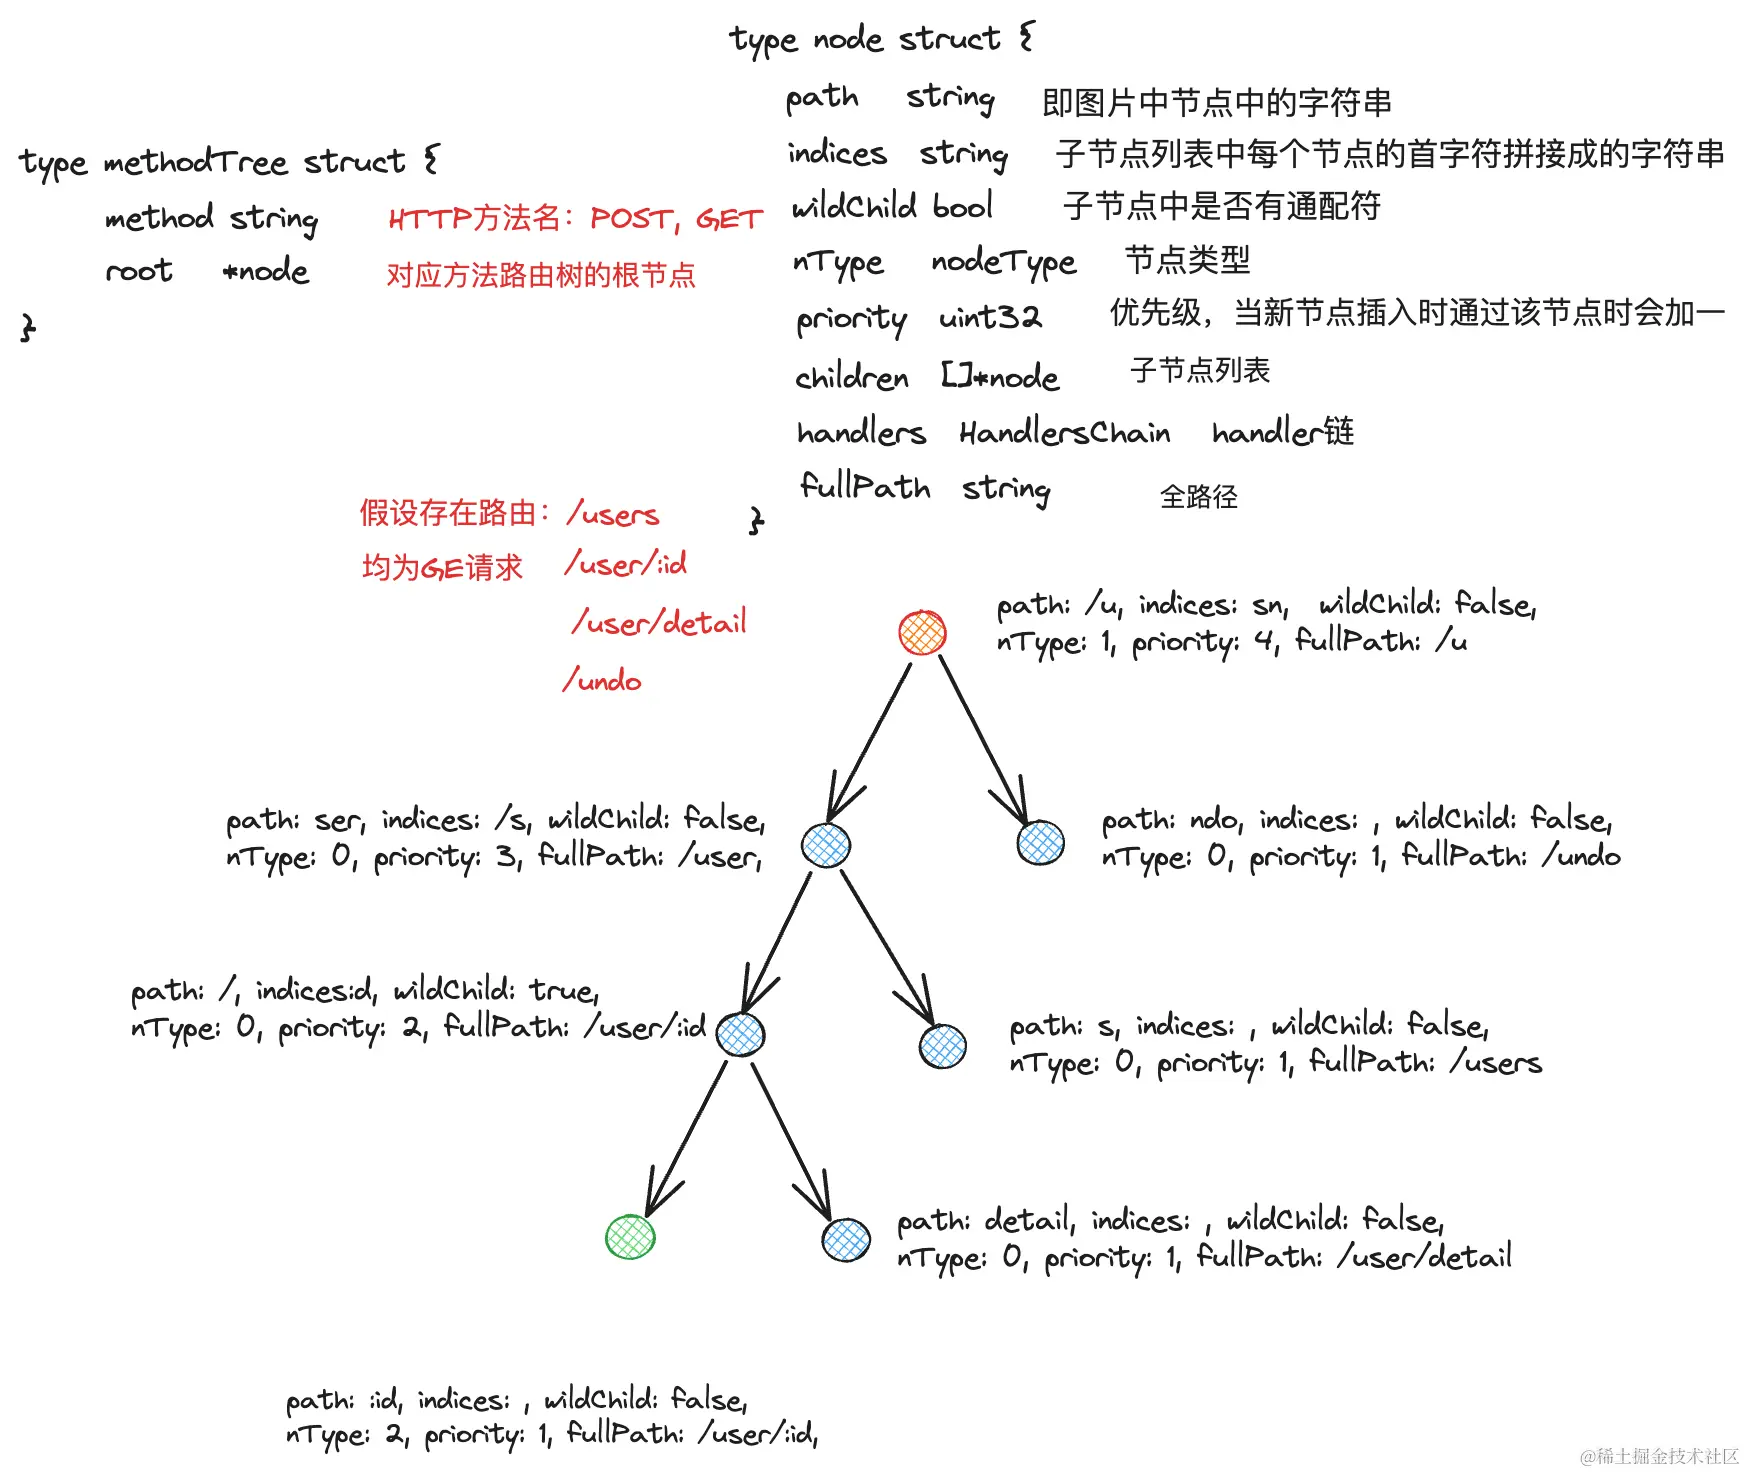 type node struct {
path string 即图片中节点中的字符串
indices string 子节点列表中每个节点的首字符拼接成的字符串
wildChild bool 子节点中是否有通配符
nType nodeType 节点类型
priority uint32 优先级，当新节点插入时通过该节点时会加一
children []*node 子节点列表
handlers HandlersChain handler链
fullPath string 全路径
}
type methodTree struct {
method string HTTP方法名：POST, GET
root *node 对应方法路由树的根节点
}
假设存在路由：/users
均为GE请求 /user/:id
/user/detail
/undo
path: /u, indices: sn, wildChild: false,
nType: 1, priority: 4, fullPath: /u
path: ser, indices: /s, wildChild: false,
nType: 0, priority: 3, fullPath: /user,
path: ndo, indices: , wildChild: false,
nType: 0, priority: 1, fullPath: /undo
path: /, indices:d, wildChild: true,
nType: 0, priority: 2, fullPath: /user/:id
path: s, indices: , wildChild: false,
nType: 0, priority: 1, fullPath: /users
path: detail, indices: , wildChild: false,
nType: 0, priority: 1, fullPath: /user/detail
path: :id, indices: , wildChild: false,
nType: 2, priority: 1, fullPath: /user/:id,
@稀土掘金技术社区